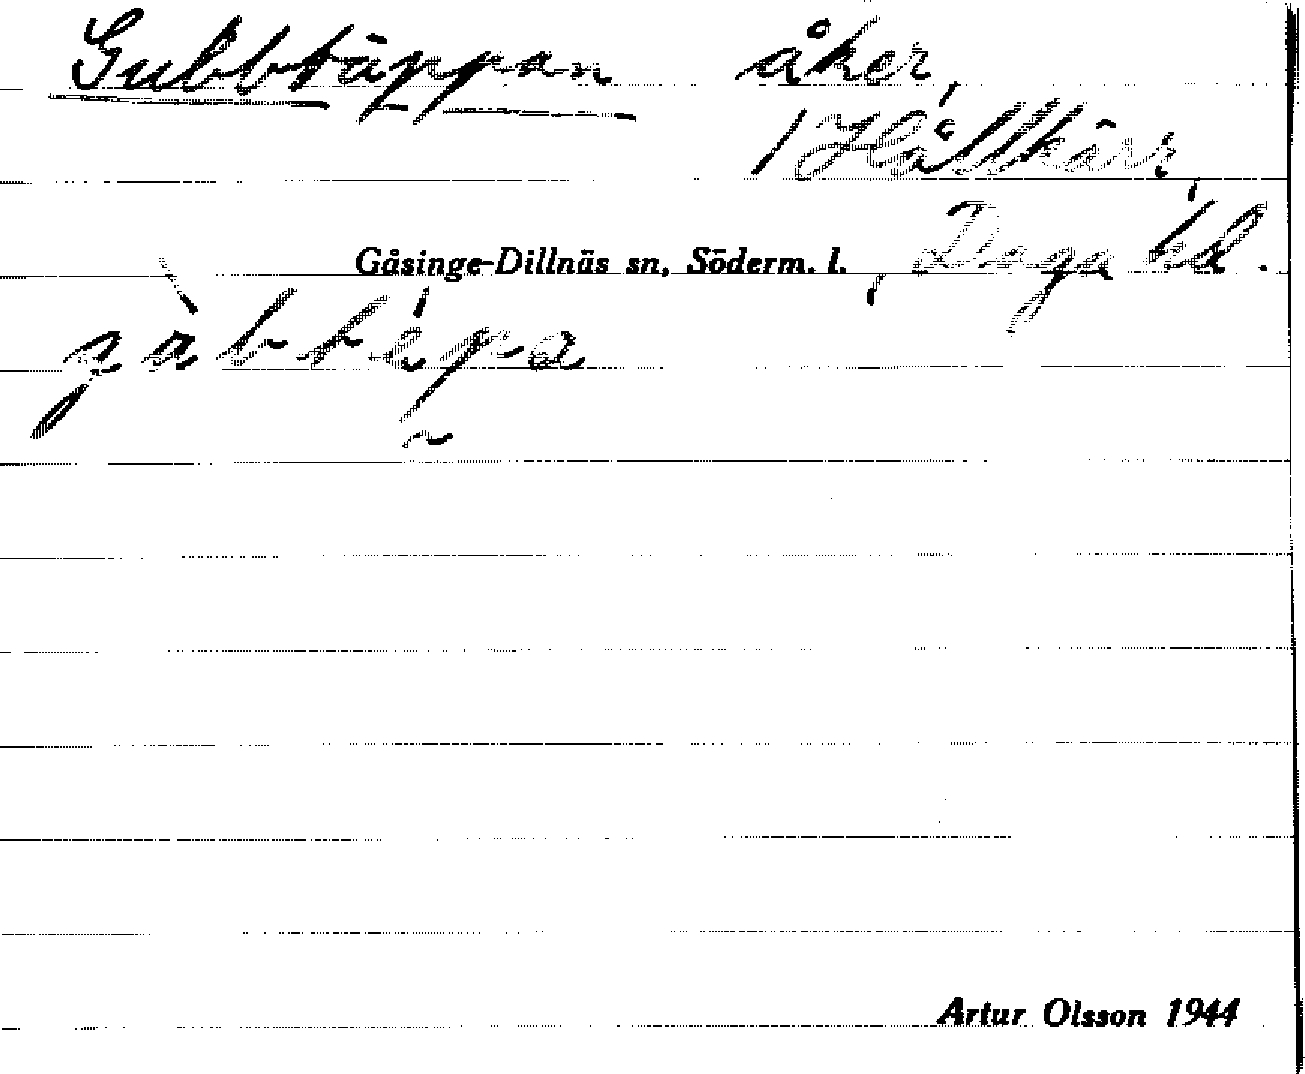 Gubbtäppan åker,
/ Hållkärr,
Gåsinge-Dillnäs sn, Söderm. l., Daga hd.
Artur Olsson 1944